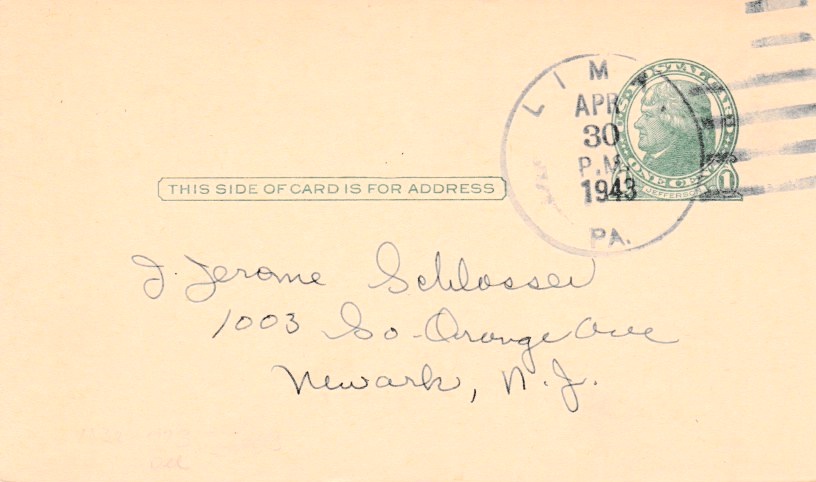 LIMA
APR
30
P.M.
1943
PA.
U.S. POSTAL CARD
ONE CENT
JEFFERSON
1
THIS SIDE OF CARD IS FOR ADDRESS
J. Jerome Schlosser
1003 So. Orange Ave
Newark, N.J.